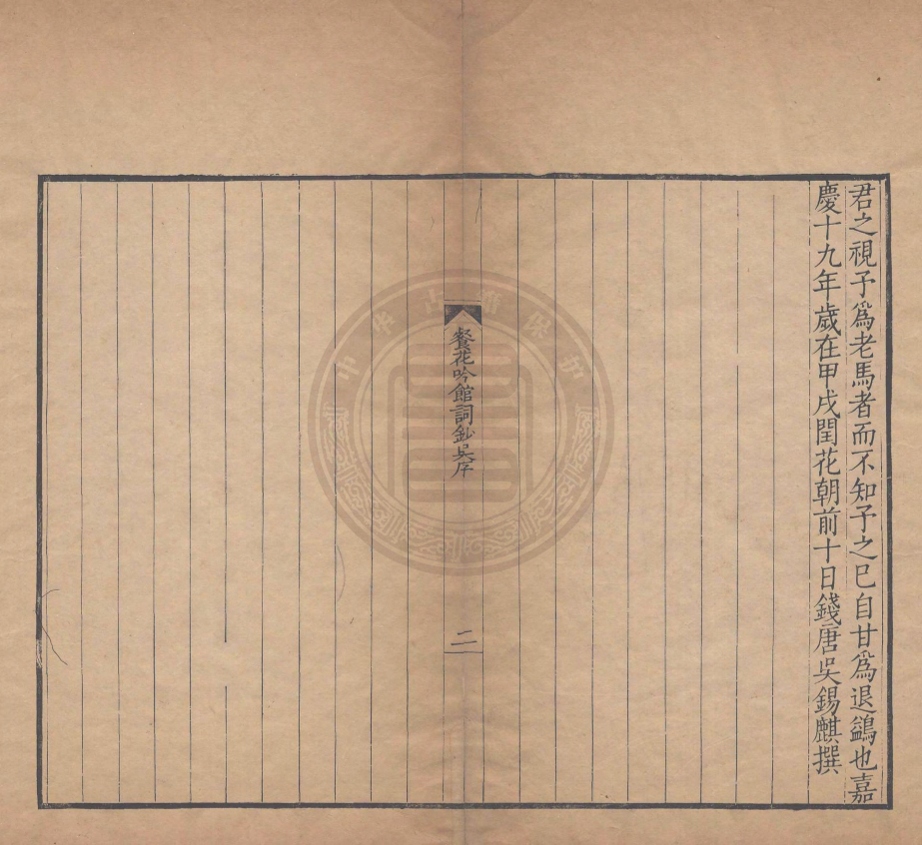 君之視予爲老馬者而不知予之已自甘爲退鷁也嘉
慶十九年歲在甲戌閏花朝前十日錢唐吳錫麒撰
餐花吟館詞鈔吳序
二
中华古籍保护